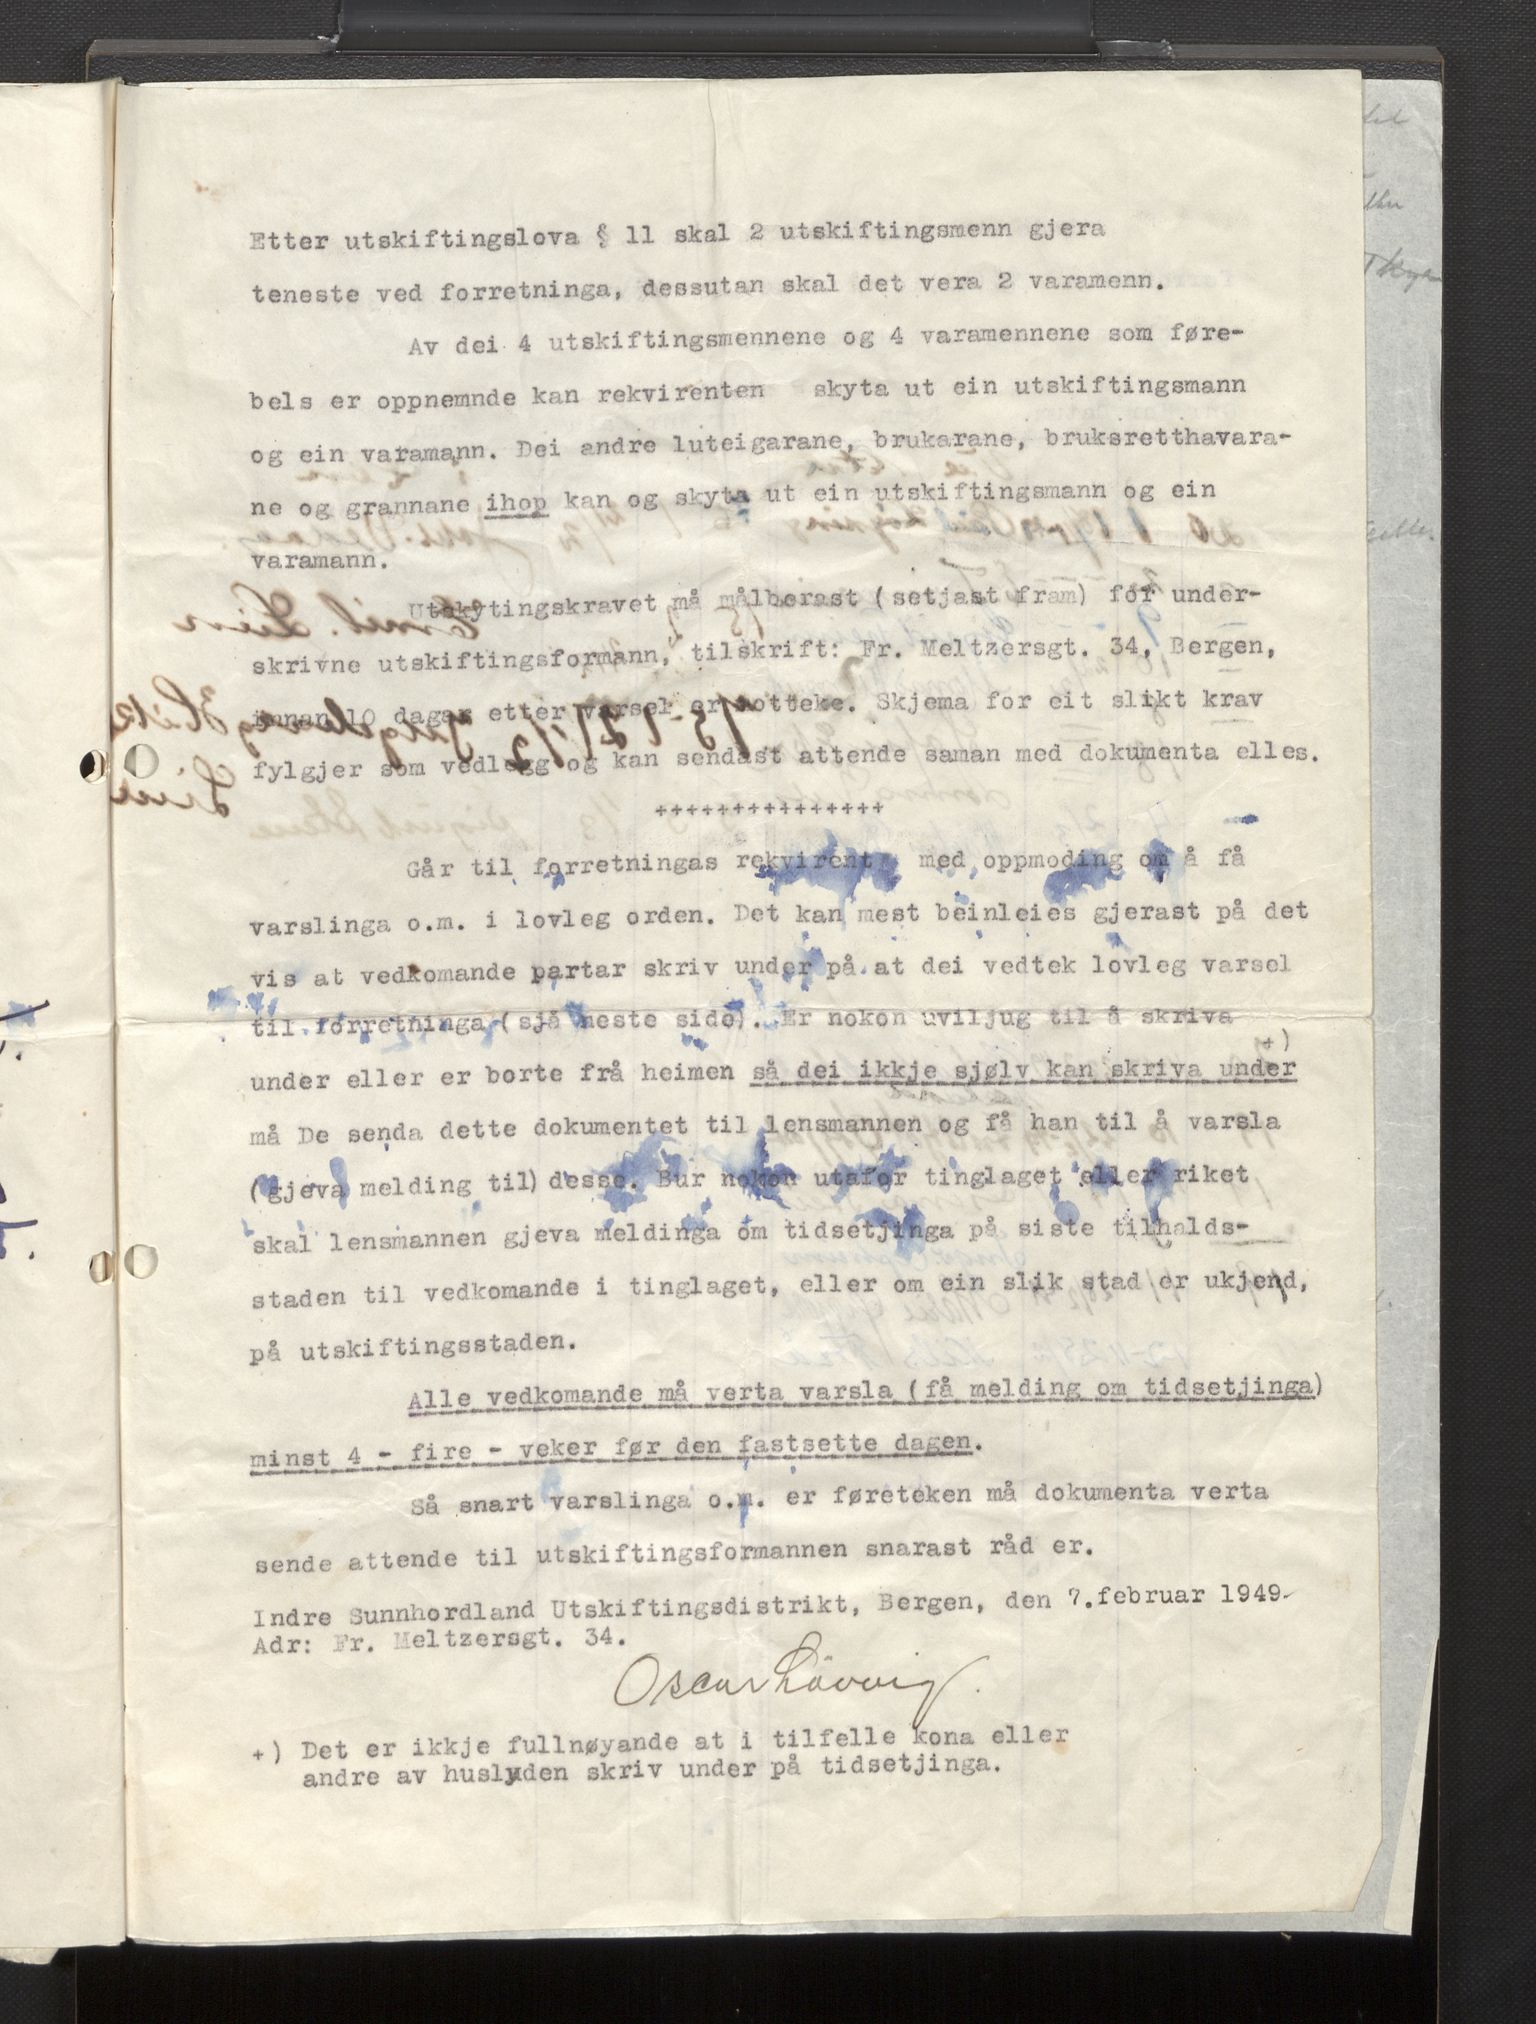 Etter utskiftingslova § 11 skal 2 utskiftingsmenn gjera
teneste ved forretninga, dessutan skal det vera 2 varamenn.
Av dei 4 utskiftingsmennene og 4 varamennene som føre-
bels er oppnemnde kan rekvirenten skyta ut ein utskiftingsmann
og ein varamann. Dei andre luteigarane, brukarane, bruksretthavara-
ne og grannane ihop kan og skyta ut ein utskiftingsmann og ein
varamann.
Utskytingskravet må målberast (setjast fram) for under-
skrivne utskiftingsformann, tilskrift: Fr. Meltzersgt. 34, Bergen,
innan 10 dagar etter varsel er motteke. Skjema for eit slikt krav
fylgjer som vedlegg og kan sendast attende saman med dokumenta elles.
+++++++++++++++
Går til forretningas rekvirent med oppmoding om å få
varslinga o.m. i lovleg orden. Det kan mest beinleies gjerast på det
vis at vedkomande partar skriv under på at dei vedtek lovleg varsel
til forretninga (sjå neste side). Er nokon uviljug til å skriva
+)
under eller er borte frå heimen så dei ikkje sjølv kan skriva under
må De senda dette dokumentet til lensmannen og få han til å varsla
(gjeva melding til) desse. Bur nokon utafor tinglaget eller riket
skal lensmannen gjeva meldinga om tidsetjinga på siste tilhalds-
staden til vedkomande i tinglaget, eller om ein slik stad er ukjend,
på utskiftingsstaden.
Alle vedkomande må verta varsla (få melding om tidsetjinga)
minst 4 - fire - veker før den fastsette dagen.
Så snart varslinga o.m. er føreteken må dokumenta verta
sende attende til utskiftingsformannen snarast råd er.
Indre Sunnhordland Utskiftingsdistrikt, Bergen, den 7. februar 1949.
Adr: Fr. Meltzersgt. 34.
Oscar Lövvig.
+) Det er ikkje fullnøyande at i tilfelle kona eller
andre av huslyden skriv under på tidsetjinga.